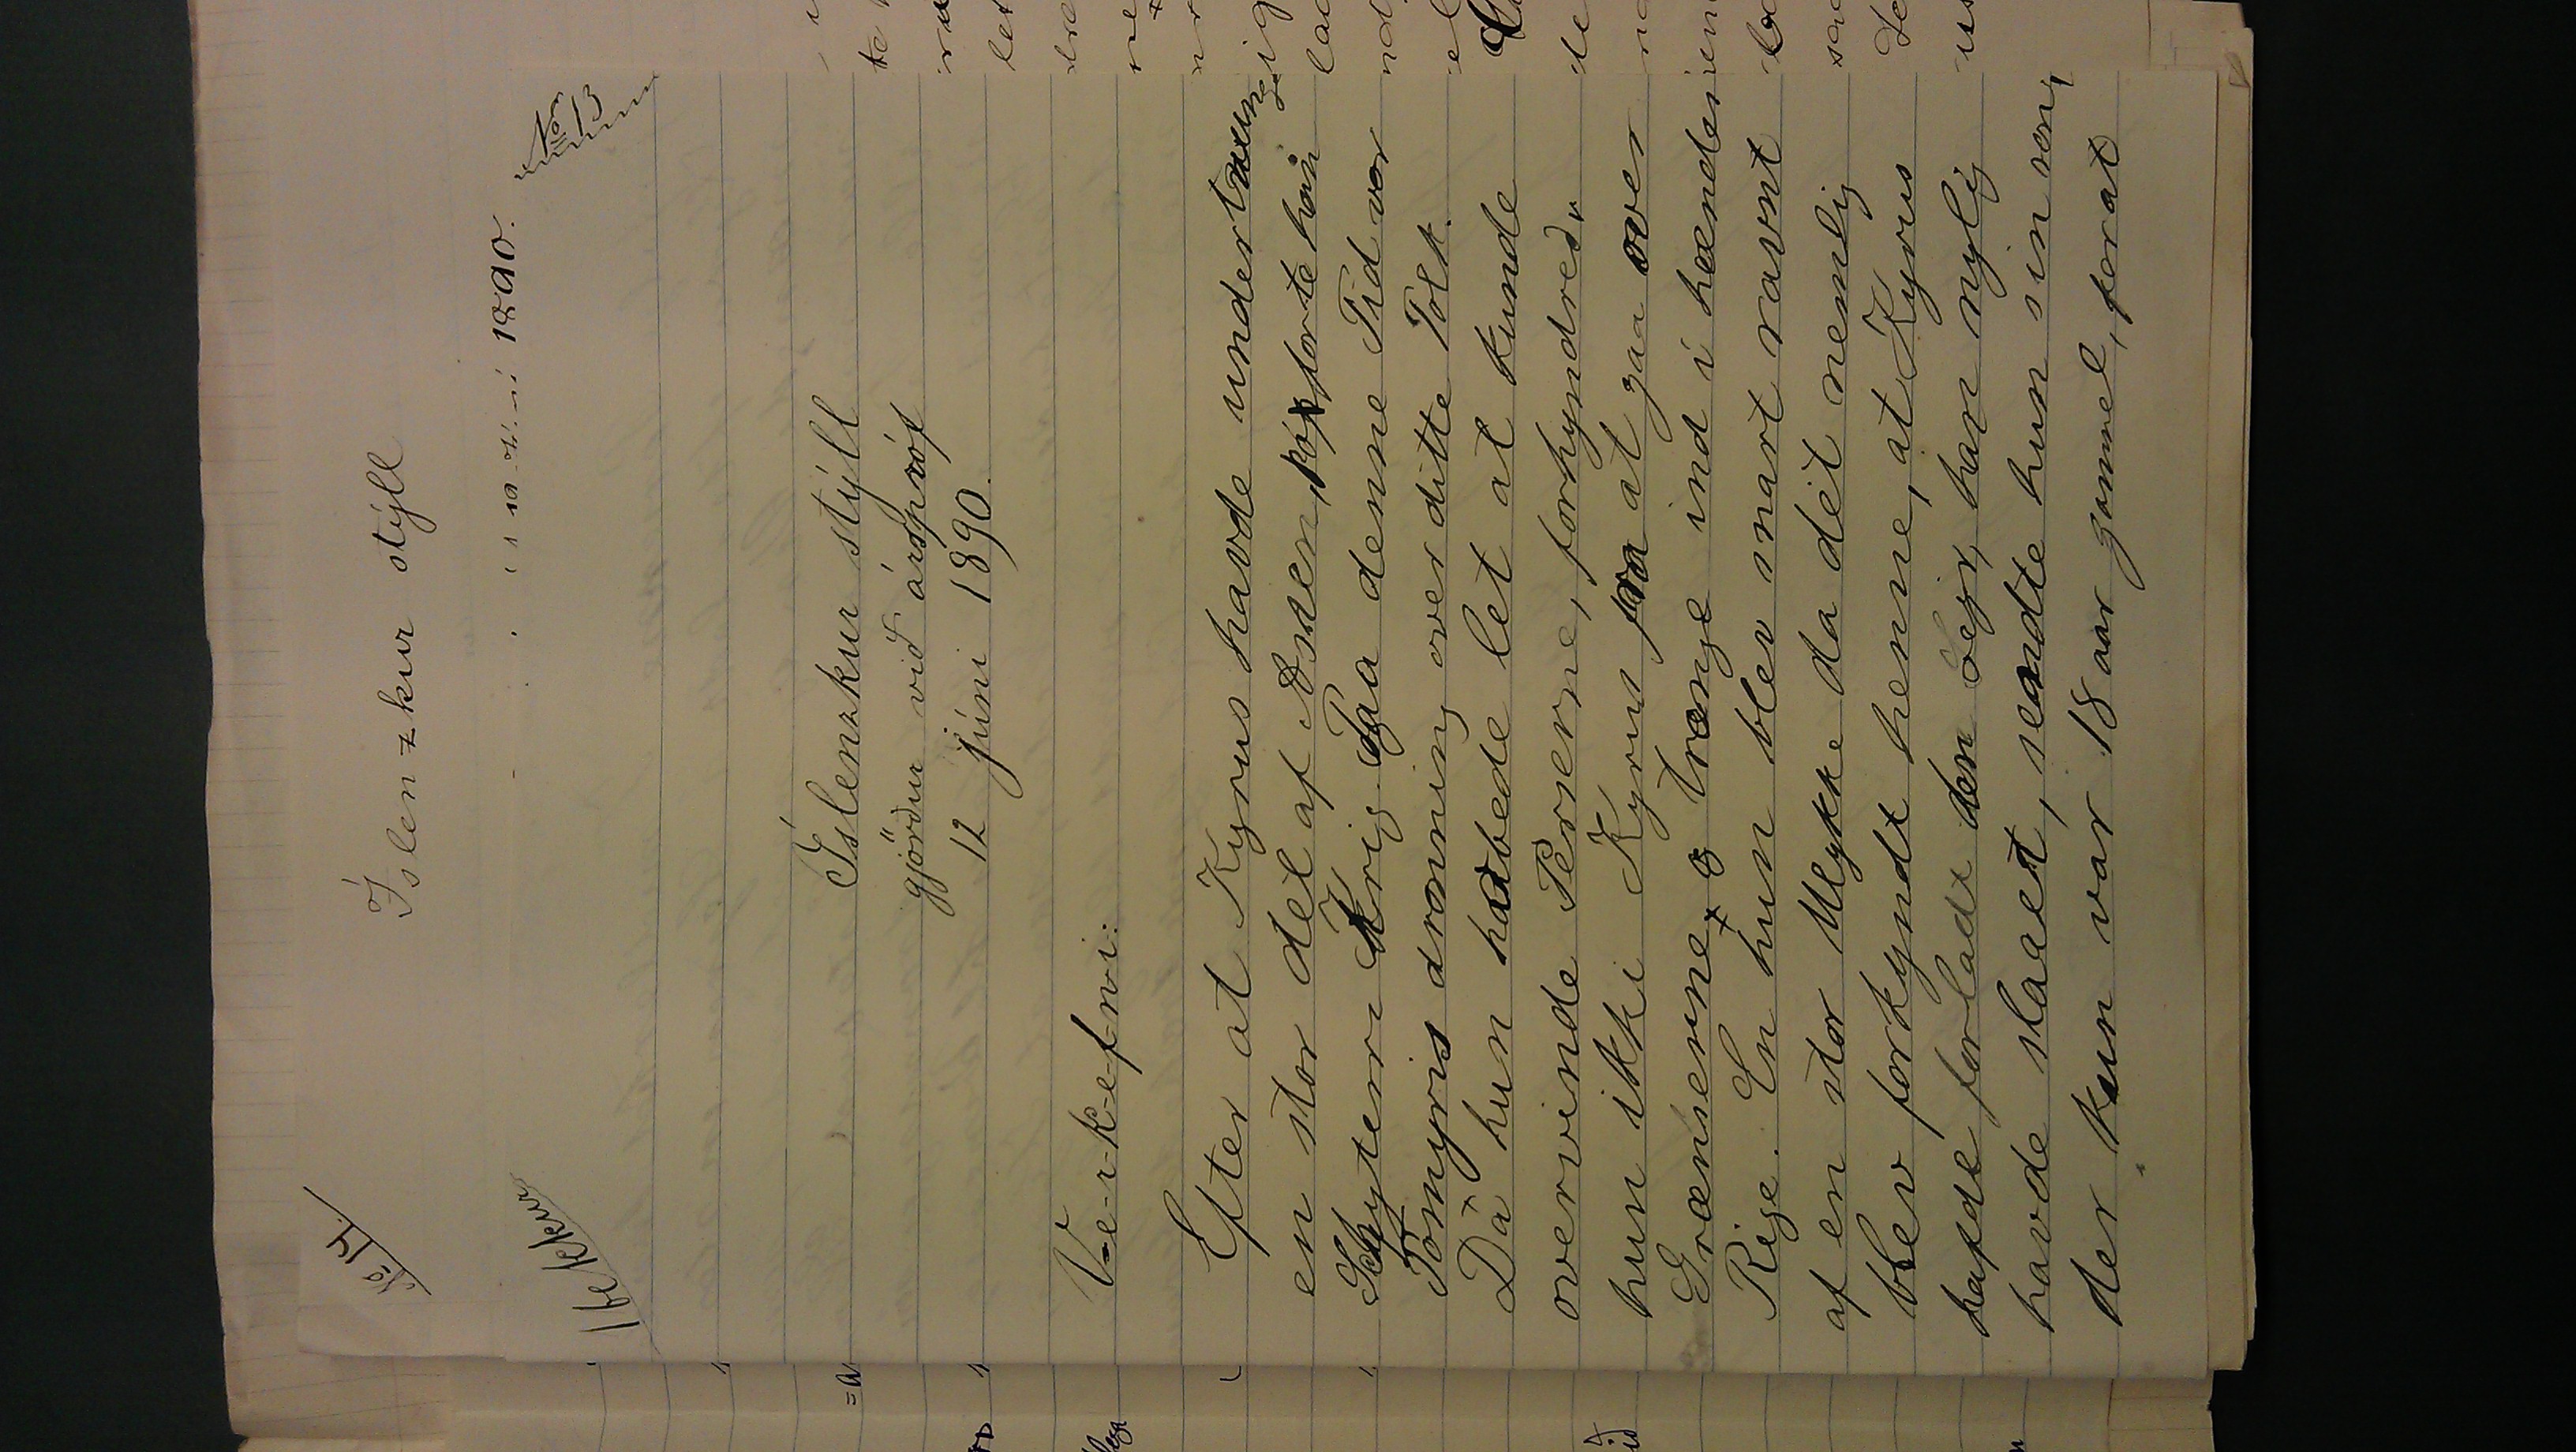 No 14.
Íslenzkur stýll
1890.
1 bekkur
No 13
Íslenzkur stýll
gjörður við árspróf
12 júni 1890.
V-e-r-k-e-f-n-i:
Efter at Kyrus havde undertvung
en stor del af Asien, førte han
Skyterne Krig. Paa denne Tid var
Tomyris dronning over ditte Folk.
Da hun hadbede let at kunde
overvinde Perserne, forhyndrede
hun ikki Kyrus fra at gaa over
Grænserne og trænge ind i hendes
Rige. En hun blev snart ravnt
af en stor Ulykke da det nemlig
blev forkyndt henne, at Kyrus
hafde forladt den Lejr, han nylig
havde slaaet, sendte hun sin søn,
der kun var 18 aar gammel, forat